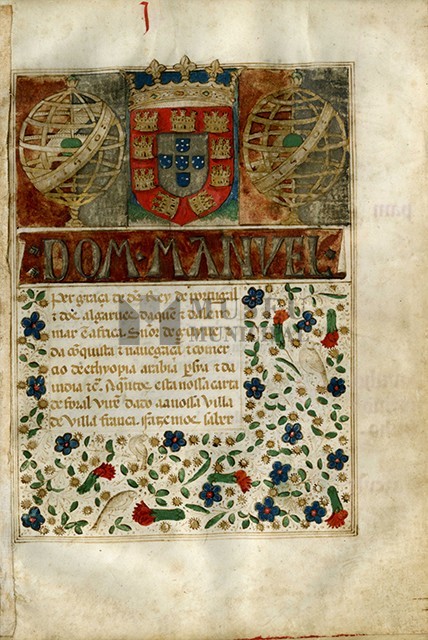 DOM·MANVEL·
Per graça de ds Rey de portugal
τ dos algarues daquē τ dalem
mar ē africa. Sñor de guinee τ
da conquista τ nauegaçã τ comer
çio de ethyopia arabia persia τ da
india τc̄. A quãtos esta nossa carta
de foral virē dado aa nossa villa
de villa franca. fazemos saber
MUSEU
MUNICIPAL